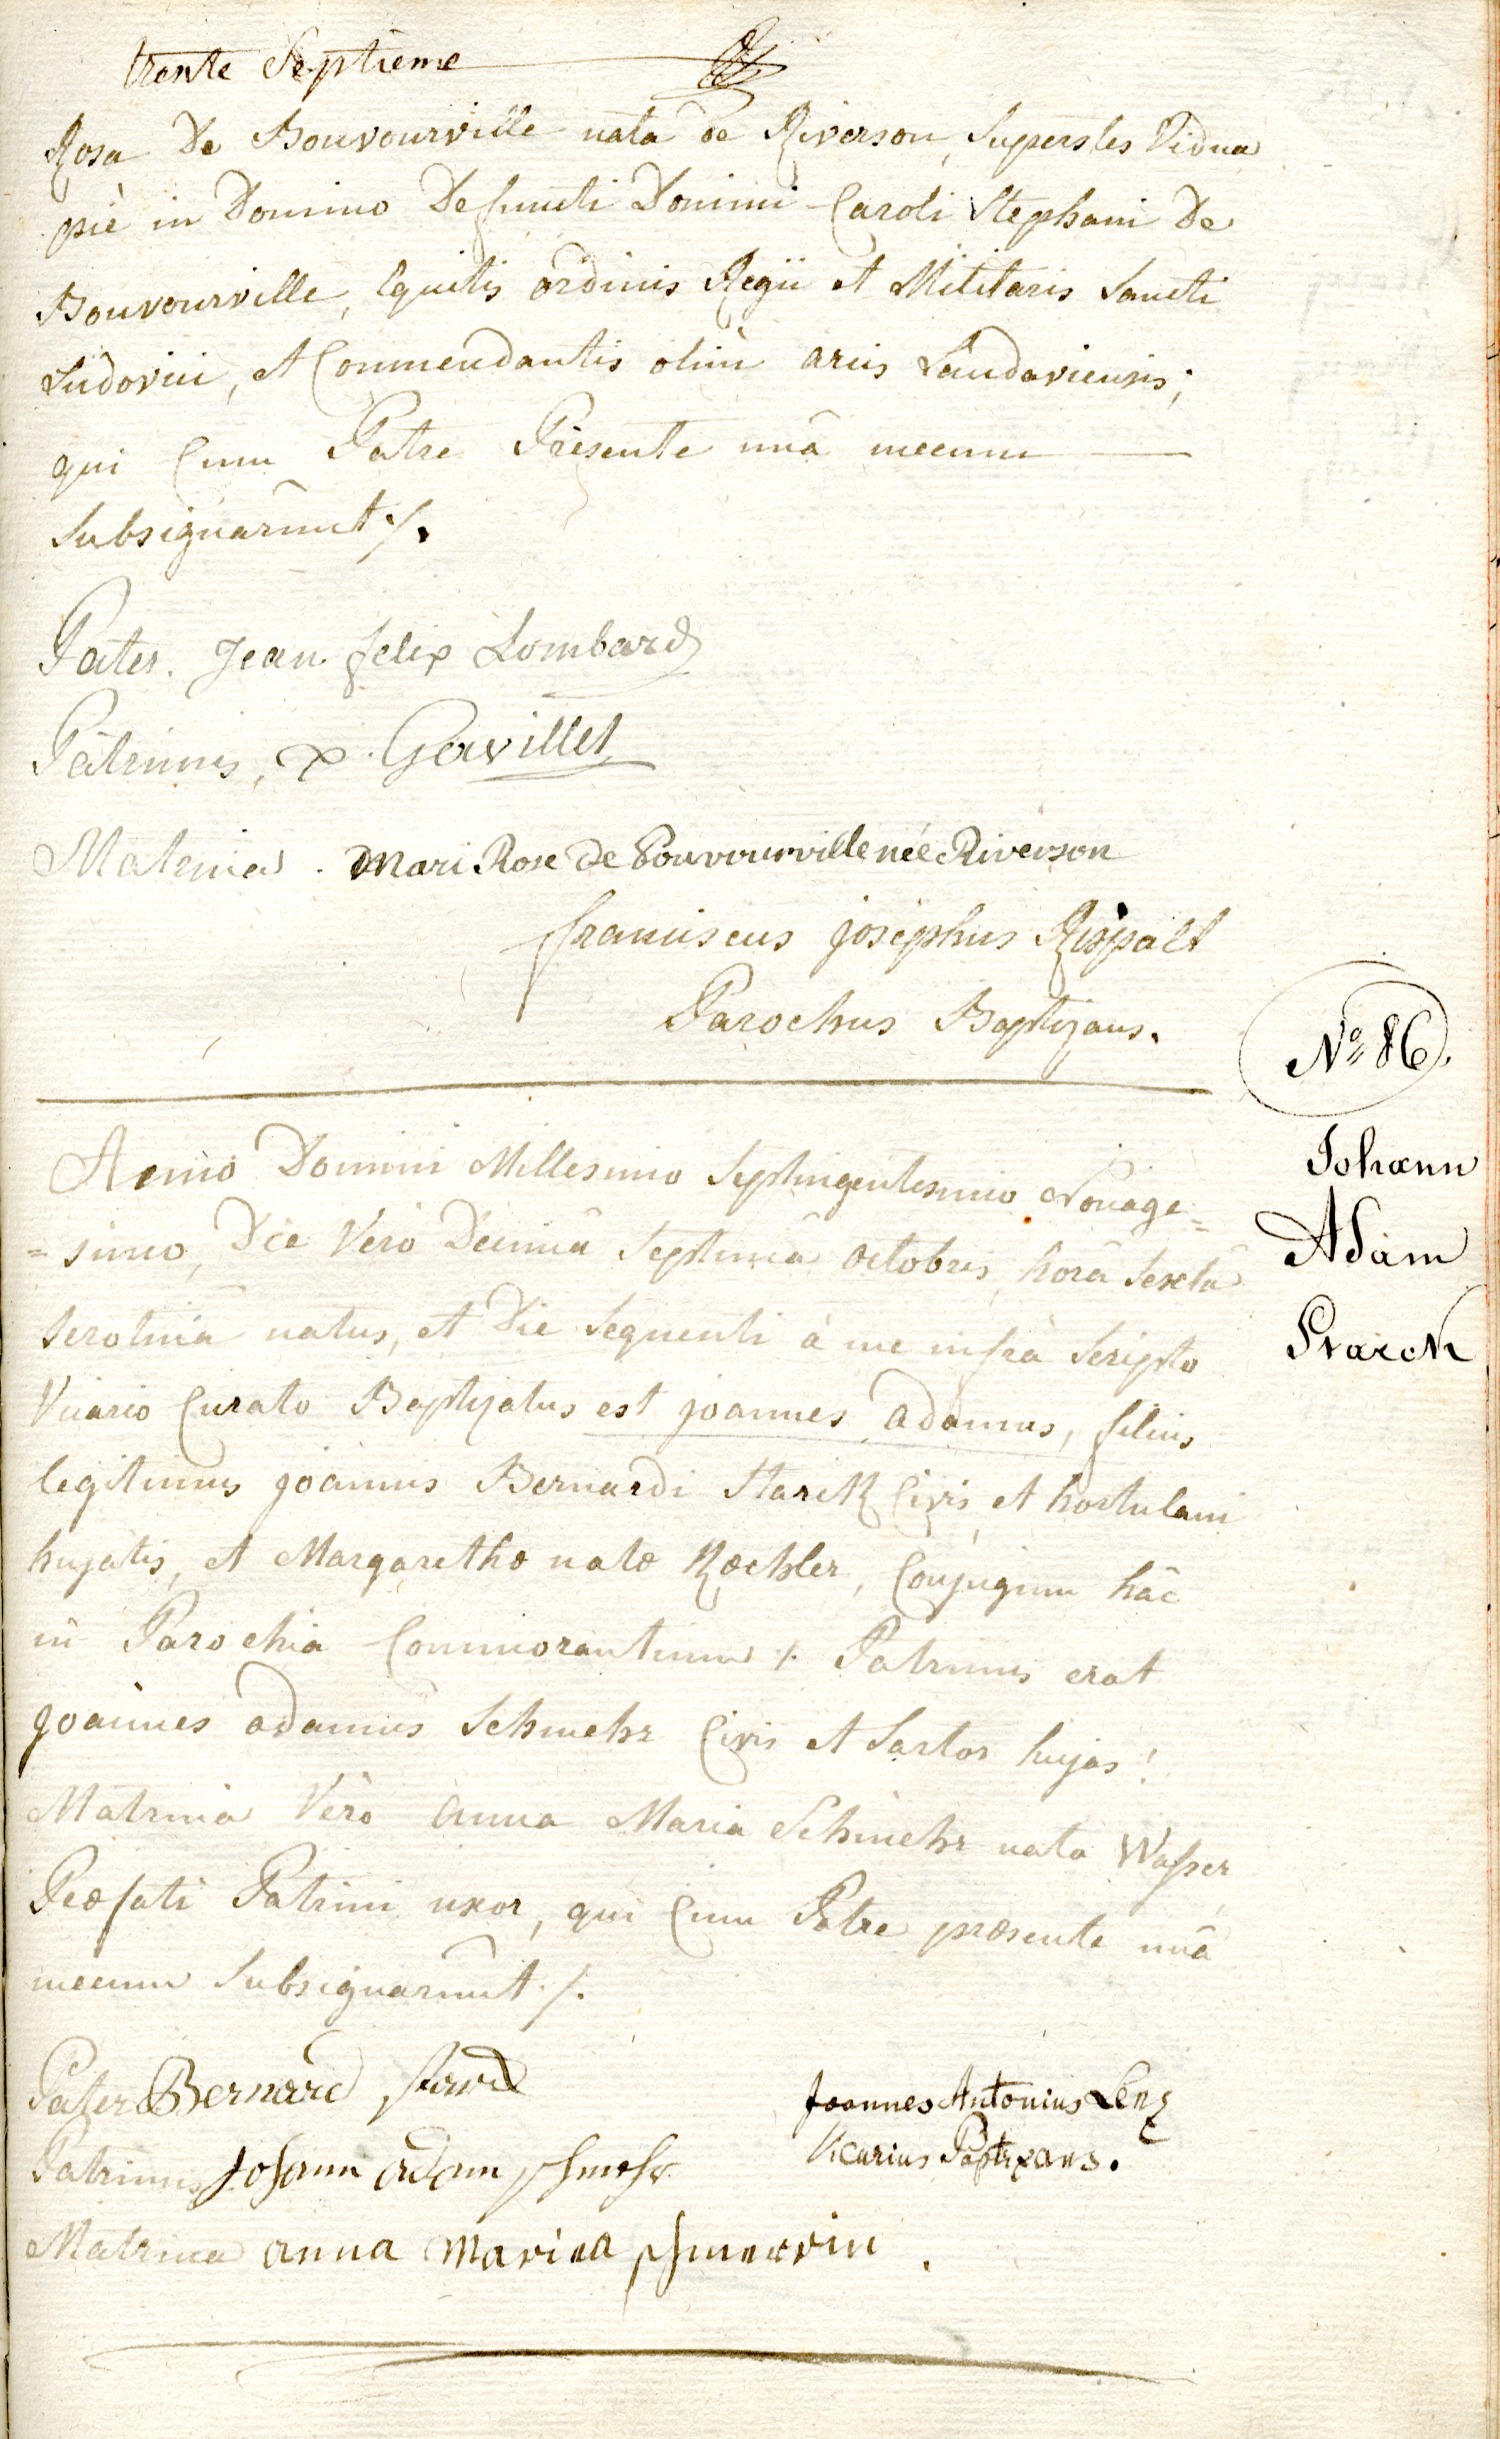 trente Septieme
Rosa De Bouvourville nata de Riverson, Superstes Vidua
piè in Domino Defuncti Domini Caroli Stephani De
Bouvourville, Equitis ordinis Regii et Militaris Sancti
Ludovici, et Commendantis olim arcis Landaviensis;
qui Cum Patre Presente unâ mecum
Subsignarunt ⁒.
Pater. Jean felix Lombard
Patrinus, Gavillet
Matrina. Mari Rose De Pouvourville née Riverson
franciscus josephus Rispalt
Parochus Baptizans.
Nº 86.
Johann
Adam
Starck
Anno Domini Millesimo Septingentesimo Nonage=
=simo, Die Vero Decimâ Septimâ octobris, horâ Sextâ
Serotinâ natus, et Die Sequenti à me infrà Scripto
Vicario Curato Baptizatus est joannes adamus, filius
legitimus joannis Bernardi Starck Civis et hortulani
hujatis, et Margarethæ natæ Kœchler, Conjugum hâc
in Parochia Commorantium ⁒ Patrinus erat
joannes adamus Schmehr Civis et Sartor hujas!
Matrina Verò anna Maria Schmehr nata Wasser
Præfati Patrini uxor, qui Cum Patre præsente unâ
mecum Subsignarunt ⁒.
Pater Bernard
Joannes Antonius Lenz
Patrinus Johann adam schmehr
Vicarius Baptizans.
Matrina anna Maria schmerrin.